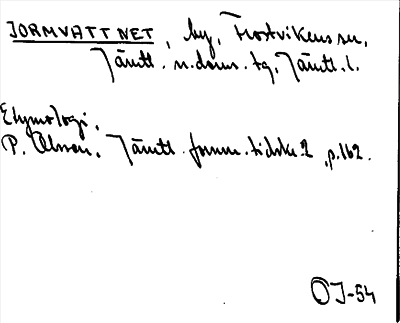 JORMVATTNET, by, Frostvikens sn,
Jämtl. n. doms. tg, Jämtl. l.
Etymologi.
P. Olsson, Jämtl. fornm. tidskr. 2, p. 162.
OJ-54